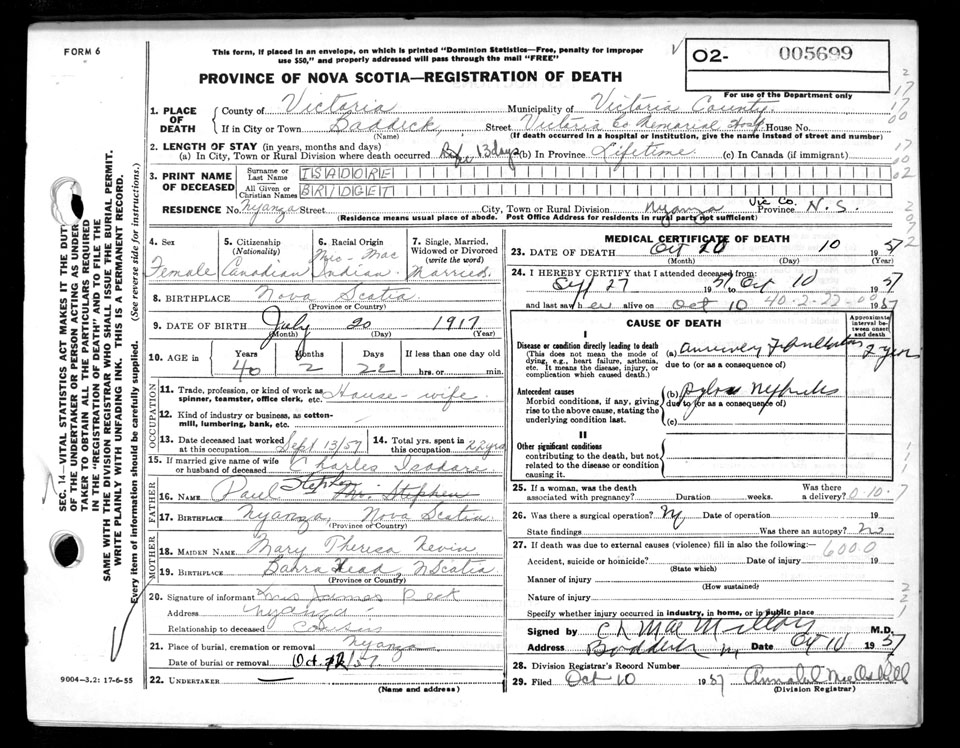 FORM 6
This form, if placed in an envelope, on which is printed "Dominion Statistics—Free, penalty for improper
use $50," and properly addressed will pass through the mail "FREE"
PROVINCE OF NOVA SCOTIA—REGISTRATION OF DEATH
02- 005699
For use of the Department only
SEC. 14—VITAL STATISTICS ACT MAKES IT THE DUTY
OF THE UNDERTAKER OR PERSON ACTING AS UNDER-
TAKER TO OBTAIN ALL THE PARTICULARS REQUIRED
IN THE "REGISTRATION OF DEATH" AND TO FILE THE
SAME WITH THE DIVISION REGISTRAR WHO SHALL ISSUE THE BURIAL PERMIT.
WRITE PLAINLY WITH UNFADING INK. THIS IS A PERMANENT RECORD.
Every item of information should be carefully supplied. (See reverse side for instructions.)
1. PLACE OF DEATH
County of Victoria Municipality of Victoria County
If in City or Town Baddeck Street Victoria Co Memorial Hosp House No.
(Name) (If death occurred in a hospital or institution, give the name instead of street and number)
2. LENGTH OF STAY (in years, months and days)
(a) In City, Town or Rural Division where death occurred 13 days (b) In Province Lifetime (c) In Canada (if immigrant)
3. PRINT NAME OF DECEASED
Surname or Last Name ISADORE
All Given or Christian Names BRIDGET
RESIDENCE No. Nyanza Street City, Town or Rural Division Nyanza Vic Co. Province N. S.
(Residence means usual place of abode. Post Office Address for residents in rural parts not sufficient)
4. Sex Female
5. Citizenship (Nationality) Canadian
6. Racial Origin Mic-Mac Indian
7. Single, Married, Widowed or Divorced (write the word) Married
8. BIRTHPLACE Nova Scotia
(Province or Country)
9. DATE OF BIRTH July 20 1917
(Month) (Day) (Year)
10. AGE IN Years Months Days If less than one day old
40 2 22 hrs. or min.
OCCUPATION
11. Trade, profession, or kind of work as
spinner, teamster, office clerk, etc. House-wife
12. Kind of industry or business, as cotton-
mill, lumbering, bank, etc.
13. Date deceased last worked at this occupation Sept 13/57
14. Total yrs. spent in this occupation 22 yrs
15. If married give name of wife
or husband of deceased Charles Isadore
FATHER
16. NAME Paul Stephen
17. BIRTHPLACE Nyanza, Nova Scotia
(Province or Country)
MOTHER
18. MAIDEN NAME Mary Theresa Nevin
19. BIRTHPLACE Barra Head, N Scotia
(Province or Country)
20. Signature of informant Mrs James Peck
Address Nyanza
Relationship to deceased Cousin
21. Place of burial, cremation or removal Nyanza
Date of burial or removal Oct. 12/57
22. UNDERTAKER
(Name and address)
9004—3.2: 17-6-55
MEDICAL CERTIFICATE OF DEATH
23. DATE OF DEATH Oct 10 1957
(Month) (Day) (Year)
24. I HEREBY CERTIFY that I attended deceased from:
Sept 27 1957 to Oct 10 1957
and last saw her alive on Oct 10 1957
40-2-22-00
CAUSE OF DEATH
Approximate interval between onset and death
I
Disease or condition directly leading to death
(This does not mean the mode of
dying, e.g., heart failure, asthenia,
etc. It means the disease, injury, or
complication which caused death.)
(a) 2 years
due to (or as a consequence of)
Antecedent causes
Morbid conditions, if any, giving
rise to the above cause, stating the
underlying condition last.
(b) Pyelo Nephritis
due to (or as a consequence of)
(c)
II
Other significant conditions
contributing to the death, but not
related to the disease or condition
causing it.
25. If a woman, was the death
associated with pregnancy? Duration weeks. Was there a delivery? 0 10.7
26. Was there a surgical operation? N Date of operation 19
State findings Was there an autopsy? No
27. If death was due to external causes (violence) fill in also the following:— 600.0
Accident, suicide or homicide? Date of injury 19
(State which)
Manner of injury
(How sustained)
Nature of injury
Specify whether injury occurred in industry, in home, or in public place
Signed by C L MacMillan M.D.
Address Baddeck Date Oct 10 1957
28. Division Registrar's Record Number
29. Filed Oct 10 1957 Annabel MacAskill
(Division Registrar)